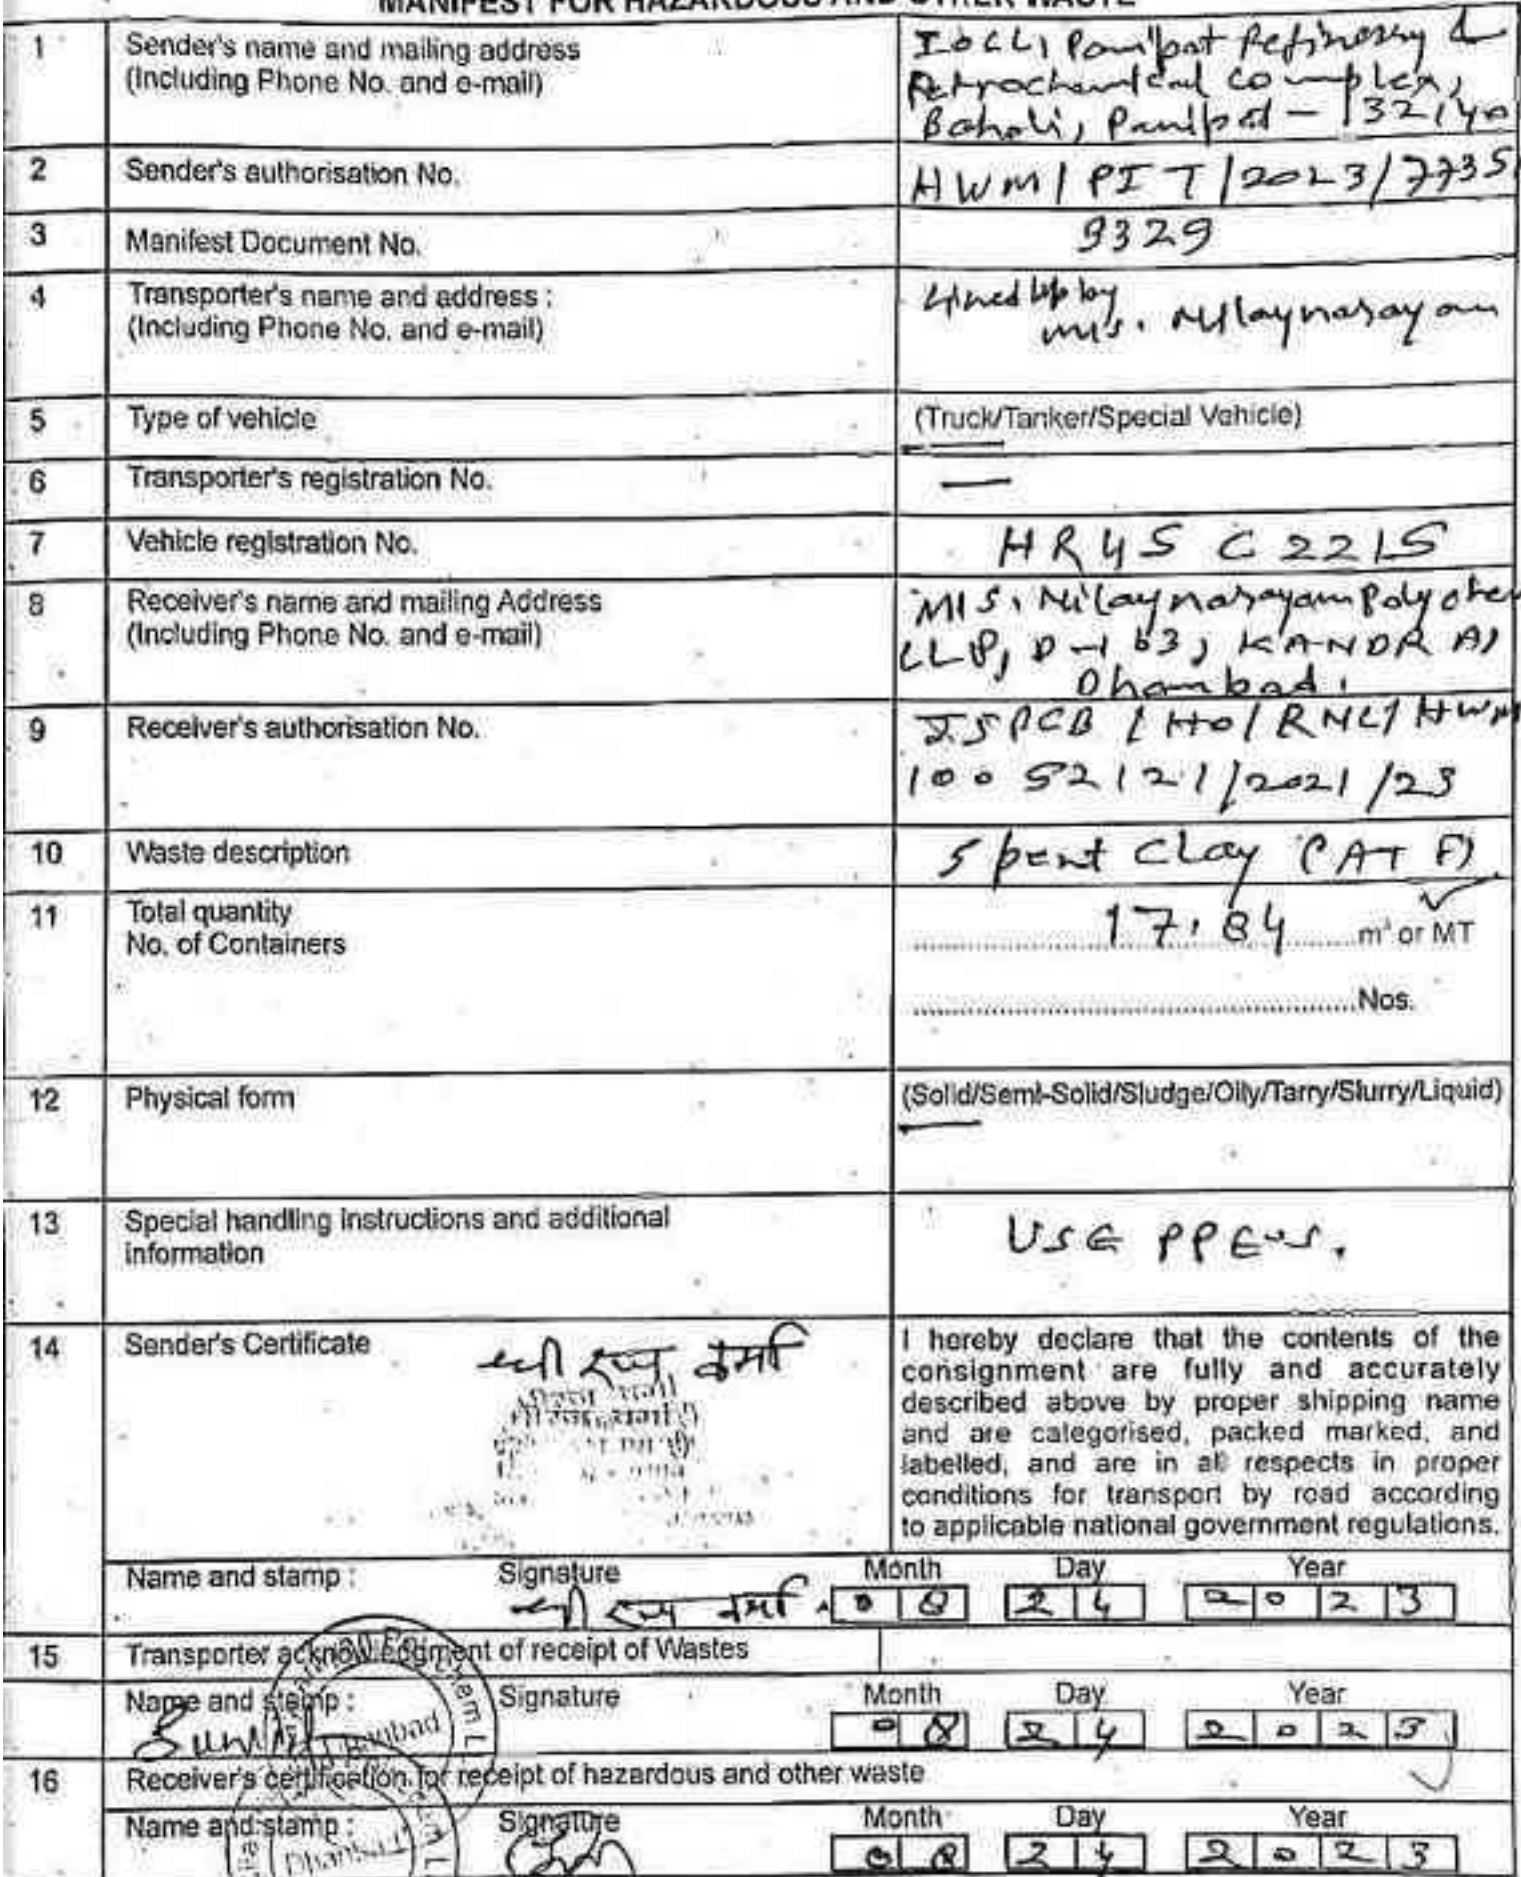 MANIFEST FOR HAZARDOUS AND OTHER WASTE
1 Sender's name and mailing address
(Including Phone No. and e-mail)
IOCL, Panipat Refinery &
Petrochemical complex,
Baholi, Panipat - 132140
2 Sender's authorisation No. HWM/PIT/2023/7735
3 Manifest Document No. 9329
4 Transporter's name and address :
(Including Phone No. and e-mail)
Lined Up by
M/s. Nilaynarayan
5 Type of vehicle (Truck/Tanker/Special Vehicle)
6 Transporter's registration No. —
7 Vehicle registration No. HR45 C 2215
8 Receiver's name and mailing Address
(Including Phone No. and e-mail)
M/S. Nilaynarayan Polyche
LLP, D-163, KANDRA,
Dhanbad.
9 Receiver's authorisation No.
JSPCB/HO/RNC/HWM
10052121/2021/23
10 Waste description Spent Clay (ATF)
11 Total quantity
No. of Containers
17.84 m³ or MT
Nos.
12 Physical form (Solid/Semi-Solid/Sludge/Oily/Tarry/Slurry/Liquid)
13 Special handling instructions and additional
information
USE PPE's.
14 Sender's Certificate
I hereby declare that the contents of the
consignment are fully and accurately
described above by proper shipping name
and are categorised, packed marked, and
labelled, and are in all respects in proper
conditions for transport by road according
to applicable national government regulations.
Name and stamp : Signature Month Day Year
08 24 2023
15 Transporter acknowledgment of receipt of Wastes
Name and stamp : Signature Month Day Year
08 24 2023
16 Receiver's certification for receipt of hazardous and other waste
Name and stamp : Signature Month Day Year
Dhanbad
08 24 2023